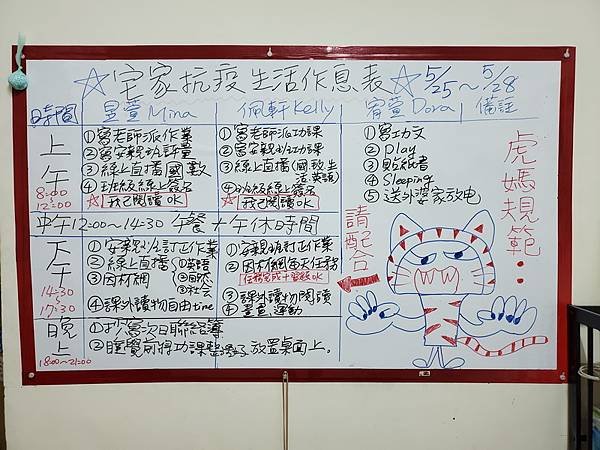 ☆宅家抗疫生活作息表☆ 5/25～5/28
時間 昱萱Mina 佩軒Kelly 宥萱Dora 備註
上午 8:00 12:00
①寫老師派作業
②寫安親班評量
③線上直播(國 數
④班級線上簽名
☆我已閱讀OK
①寫老師派功課
②寫安親班功課
③線上直播(國 數 生活 英語)
④班級線上簽名
☆我已閱讀OK
①寫功文
②play
③貼紙書
④Sleeping
⑤送外婆家放电
虎媽規範：
請配合
中午12:00～14:30 午餐+午休時間
下午 14:30 17:30
①安親班訂正作業
②線上直播(①英語 ②自然 ③社會
③因材網
④課外讀物自由time
①安親班訂正作業
②因材網每天任務
③課外讀物閱讀
④畫畫、運動
晚上 18:00～21:00
①抄寫次日聯絡簿
②睡覺前將功課整理好放置桌面上。